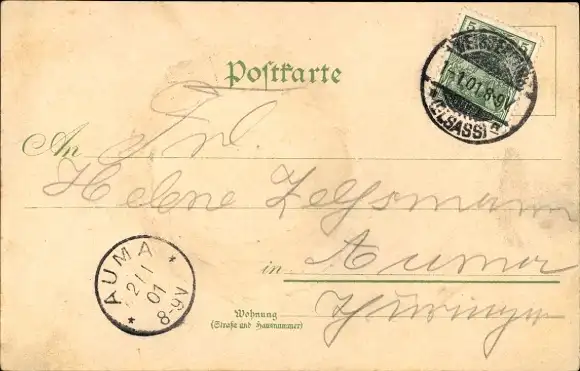 5 5
(ELSASS)
1.01.8-9V
Postkarte
An Frl.
Helene
in Auma
Thüringen
AUMA
2/1
01
8-9V
Wohnung
(Straße und Hausnummer)